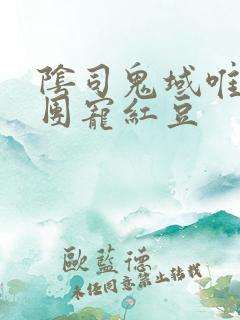 陰司鬼域唯
團寵紅豆
歐藍德
未經同意禁止轉載